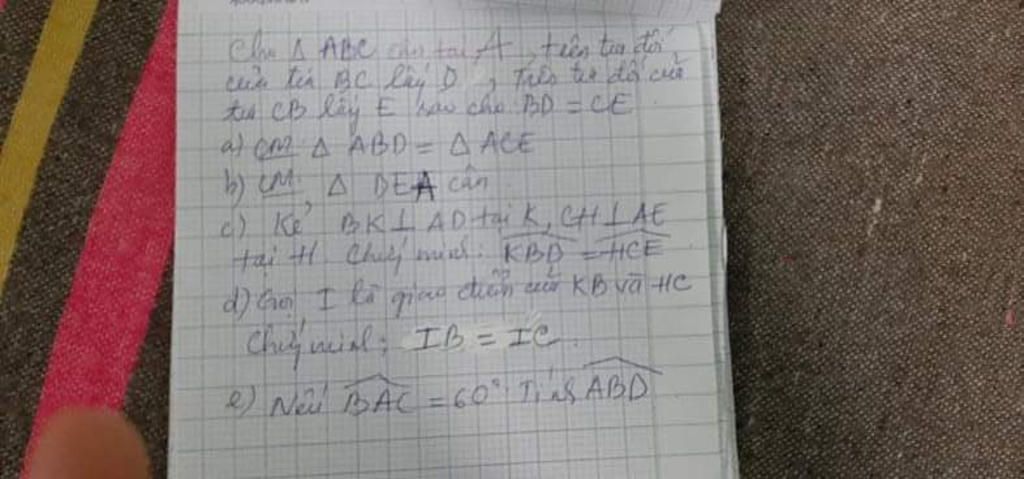 Cho Δ ABC cân tại A, trên tia đối
của tia BC lấy D, Trên tia đối của
tia CB lấy E sao cho BD = CE
a) CM Δ ABD = Δ ACE
b) CM Δ DEA cân
c) Kẻ BK⊥AD tại K, CH⊥AE
tại H. Chứng minh: KBD = HCE
d) Gọi I là giao điểm của KB và HC
Chứng minh: IB = IC.
e) Nếu BAC = 60° Tính ABD